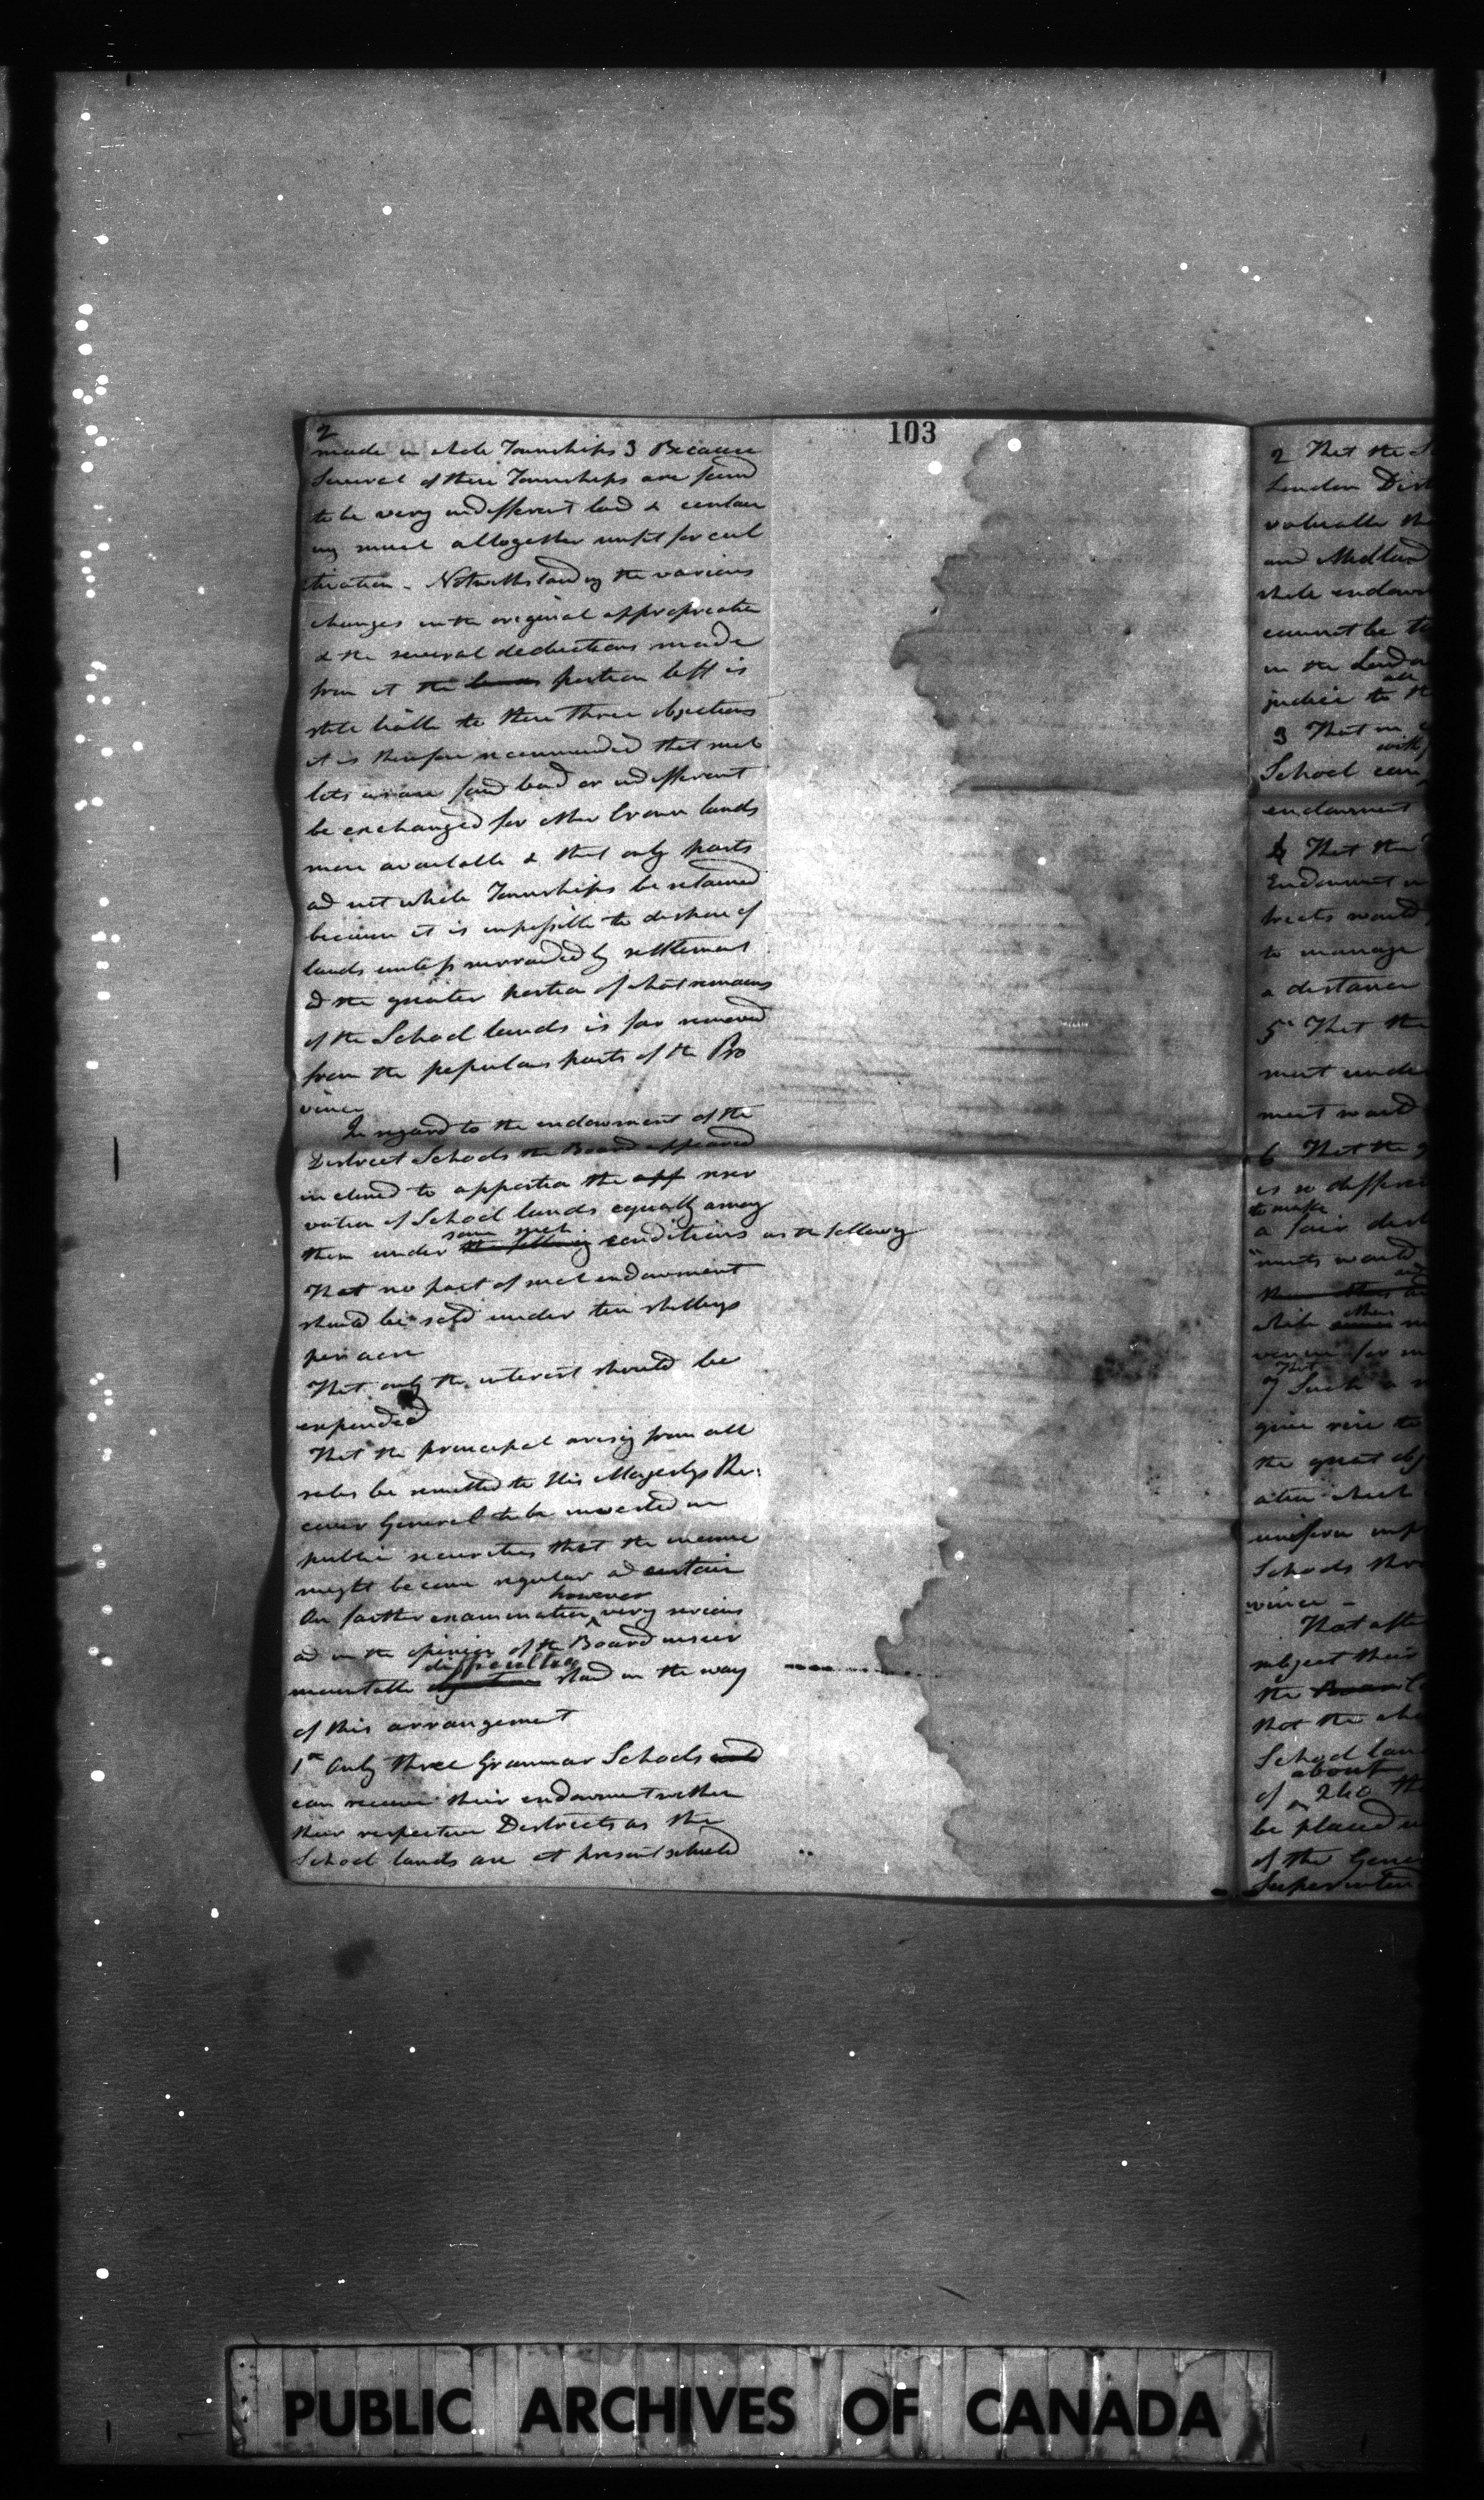 103
2
made in whole Townships 3 Because
Several of these Townships are found
to be very indifferent land & contain
ing much altogether unfit for cul
tivation - Notwithstanding the various
changes in the original appropriation
& the several deductions made
from it the portion left is
still liable to these three objections
it is therefore recommended that such
lots as are found bad or indifferent
be exchanged for other Crown lands
more available & that only parts
and not whole Townships be retained
because it is impossible to dispose of
lands unless surrounded by settlement
and the greater portion of what remains
of the School lands is far removed
from the populous parts of the Pro
vince
In regard to the endowment of the
District Schools the Board appeared
inclined to apportion the app reser
vation of School lands equally among
some such
them under the following conditions as the following
That no part of such endowment
should be sold under ten shillings
per acre
That only the interest should be
expended
That the principal arising from all
sales be remitted to His Majestys Re:
ceiver General to be invested in
public securities that the income
might become regular and certain
however
On farther examination ^ very serious
and in the opinion of the Board insur
difficulties
mountable stand in the way
of this arrangement
1st Only three Grammar Schools
can receive their endowment within
their respective Districts as the
School lands are at present situated
2 That the
London Dist
valuable
and Midland
whole endow
cannot be
in the London
judice to
3 That in
with
School can
endowment
4 That the
Endowment
tricts would
to manage
a distance
5th That the
ment unde
ment would
6 That the
is so differe
to make
a fair dist
ments would
others
while
venue for
That
7 Such a
give rise to
the great obj
ation which
uniform
Schools thro
vince -
That afte
subject their
the Board
that the
School lan
about
of ^ 240
be placed
of the Gene
Superinten
PUBLIC ARCHIVES OF CANADA